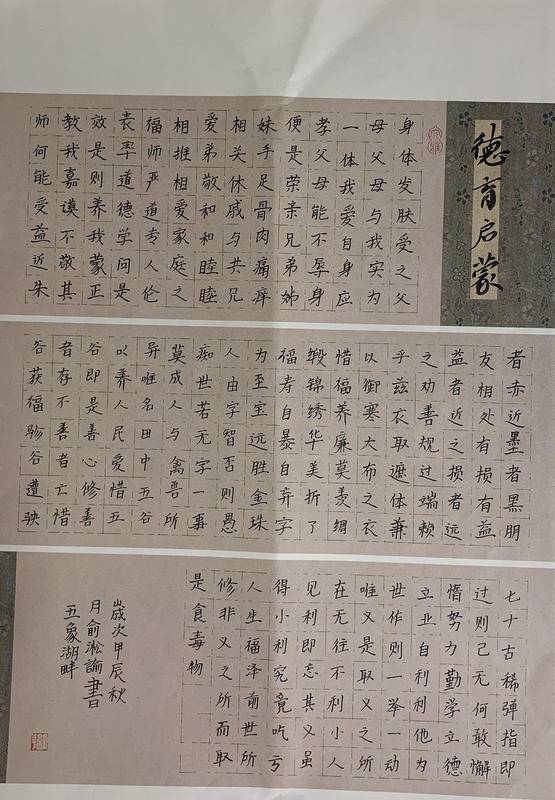 德育启蒙
身体发肤受之父
母父母与我实为
一体我爱自身应
孝父母能不辱身
便是荣亲兄弟姊
妹手足骨肉痛痒
相关休戚与共兄
爱弟敬和和睦睦
相推相爱家庭之
福师严道专人伦
表率道德学问是
效是则养我蒙正
教我嘉谟不敬其
师何能受益近朱
者赤近墨者黑朋
友相处有损有益
益者近之损者远
之劝善规过端赖
乎兹衣取遮体兼
以御寒大布之衣
惜福养廉莫羡绸
缎锦绣华美折了
福寿自暴自弃字
为至宝远胜金珠
人由字智否则愚
痴世若无字一事
莫成人与禽兽所
异唯名田中五谷
以养人民爱惜五
谷即是善心修善
者存不善者亡惜
谷获福谷遭殃
七十古稀弹指即
过则已无何敢懈
惰努力勤学立德
立业自利利他为
世作则一举一动
唯义是取义之所
在无往不利小人
见利即忘其义虽
得小利究竟吃亏
人生福泽前世所
修非义之所而取
是食毒物
歲次甲辰秋
月俞淞諭書
五象湖畔